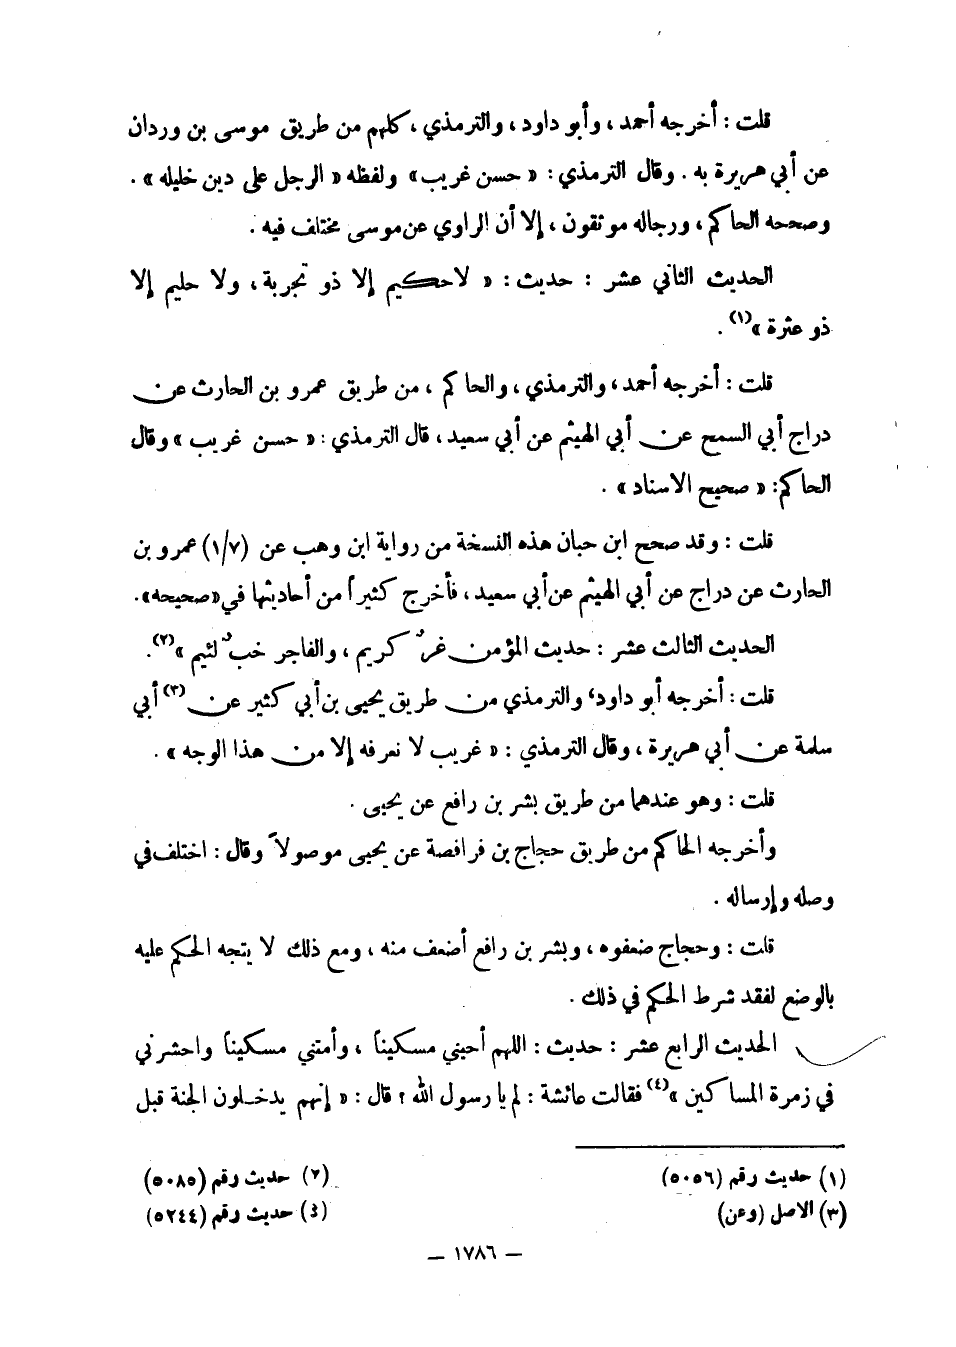 قلت : أخرجه أحمد ، وأبو داود ، والترمذي ، كلهم من طريق موسى بن وردان
عن أبي هريرة به . وقال الترمذي : « حسن غريب » ولفظه « الرجل على دين خليله » .
وصححه الحاكم ، ورجاله موثقون ، إلا أن الراوي عن موسى مختلف فيه .
الحديث الثاني عشر : حديث : « لاحكيم إلا ذو تجربة ، ولا حليم إلا
ذو عثرة »(١) .
قلت : أخرجه أحمد ، والترمذي ، والحاكم ، من طريق عمرو بن الحارث عن
دراج أبي السمح عن أبي الهيثم عن أبي سعيد ، قال الترمذي : « حسن غريب » وقال
الحاكم : « صحيح الاسناد » .
قلت : وقد صحح ابن حبان هذه النسخة من رواية ابن وهب عن (١/٧) عمرو بن
الحارث عن دراج عن أبي الهيثم عن أبي سعيد ، فأخرج كثيراً من أحاديثها في « صحيحه » .
الحديث الثالث عشر : حديث المؤمن غرٌ كريم ، والفاجر خبٌ لئيم »(٢) .
قلت : أخرجه أبو داود ، والترمذي من طريق يحيى بن أبي كثير عن(٣) أبي
سلمة عن أبي هريرة ، وقال الترمذي : « غريب لا نعرفه إلا من هذا الوجه » .
قلت : وهو عندهما من طريق بشر بن رافع عن يحيى .
وأخرجه الحاكم من طريق حجاج بن فرافصة عن يحيى موصولاً وقال : اختلف في
وصله وإرساله .
قلت : وحجاج ضعفوه ، وبشر بن رافع أضعف منه ، ومع ذلك لا يتجه الحكم عليه
بالوضع لفقد شرط الحكم في ذلك .
الحديث الرابع عشر : حديث : اللهم أحيني مسكيناً ، وأمتني مسكيناً واحشرني
في زمرة المساكين »(٤) فقالت عائشة : لم يا رسول الله ؟ قال : « إنهم يدخلون الجنة قبل
(١) حديث رقم (٥٠٥٦) (٢) حديث رقم (٥٠٨٥)
(٣) الاصل (وعن) (٤) حديث رقم (٥٢٤٤)
— ١٧٨٦ —